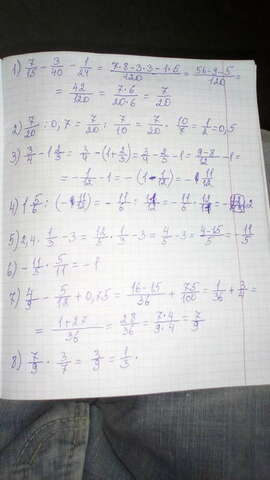 1) 7/15 - 3/40 - 1/24 = (7·8-3·3-1·5)/120 = (56-9-5)/120 =
= 42/120 = (7·6)/(20·6) = 7/20
2) 7/20 : 0,7 = 7/20 : 7/10 = 7/20 · 10/7 = 1/2 = 0,5
3) 3/4 - 1 2/3 = 3/4 - (1+2/3) = 3/4 - 2/3 - 1 = (9-8)/12 - 1 =
4) 1 5/6 :
5) 2,4 · 1/3 - 3 = 12/5 · 1/3 - 3 = 4/5 - 3 = (4-15)/5 = - 11/5
6) - 11/5 · 5/11 = -1
7) 4/9 - 5/12 + 0,75 = (16-15)/36 + 75/100 = 1/36 + 3/4 =
= (1+27)/36 = 28/36 = (7·4)/(9·4) = 7/9
8) 7/9 · 3/7 = 3/9 = 1/3.